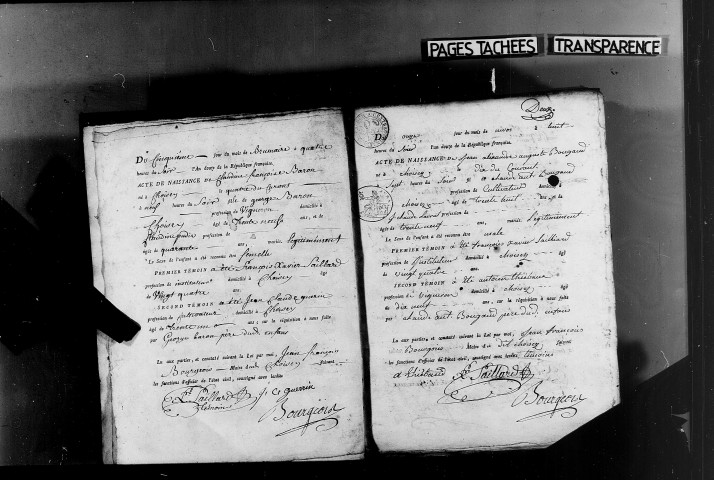 PAGES TACHÉES TRANSPARENCE
Du Cinquième jour du mois de Brumaire à quatre
heures du Soir l'An douze de la République française.
ACTE DE NAISSANCE DE françoise Baron
né à Choisey le quatre du Courant
à neuf heures du Soir fille de george Baron
profession de Vigneron domicilié à
Choisey âgé de trente neuf ans, et de
profession de
âgée de quarante ans, mariés légitimement
Le Sexe de l'enfant a été reconnu être femelle
PREMIER TÉMOIN a été François Xavier Saillard
profession de instituteur domicilié à Choisey âgé
de Vingt quatre ans.
SECOND TÉMOIN a été Jean Claude guerin
profession de domicilié à Choisey
âgé de trente ans; sur la réquisition à nous faite
par George baron père dud. enfant
Lu aux parties, et constaté suivant la Loi par moi, Jean françois
Bourgeois Maire de Choisey faisant
les fonctions d'Officier de l'état civil, soussigné avec lesdits
Saillard J. C. guerrin
témoins
Bourgeois
Deux
Du onze jour du mois de à huit
heures du Soir l'An douze de la République française.
ACTE DE NAISSANCE DE Jean alexandre auguste Bougaud
né à choisey le dix du Courant
à Sept heures du Soir fils d'
profession de Cultivateur domicilié à
choisey âgé de trente huit ans, et de
profession de
âgée de trente neuf ans, mariés légitimement
Le Sexe de l'enfant a été reconnu être male
PREMIER TÉMOIN a été françois xavier Saillard
profession d'instituteur domicilié à choisey âgé
de Vingt quatre ans.
SECOND TÉMOIN a été antoine
profession de Vigneron domicilié à choisey
âgé de dix neuf ans; sur la réquisition à nous faite
par Bougaud père dud. enfant
Lu aux parties, et constaté suivant la Loi par moi, Jean françois
Bourgeois Maire de dit choisey faisant
les fonctions d'Officier de l'état civil, soussigné avec lesdits témoins
Saillard
Bourgeois